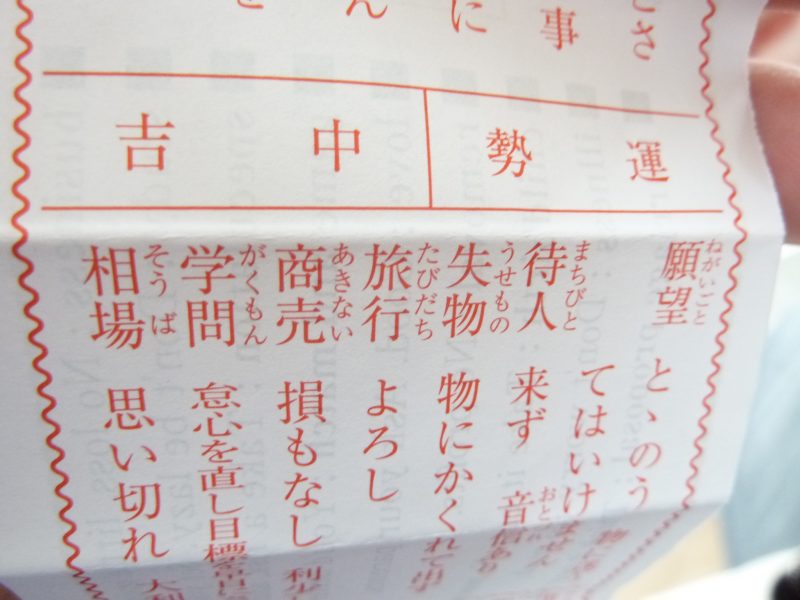 さ
事
に
ん
運勢 中吉
ねがいごと
願望 とゝのう
てはいけません
まちびと
待人 来ず 音信あり
うせもの
失物 物にかくれて出
たびだち
旅行 よろし
あきない
商売 損もなし 利少
がくもん
学問 怠心を直し目標を
そうば
相場 思い切れ 大利